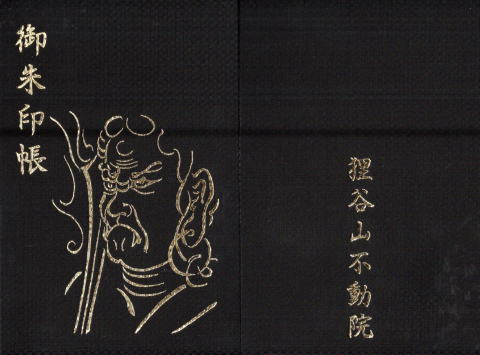 御朱印帳
狸谷山不動院